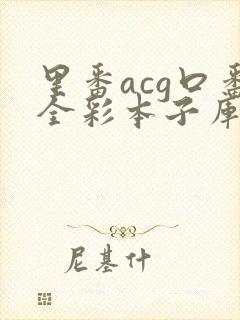 里番acg口番
全彩本子库
尼基什